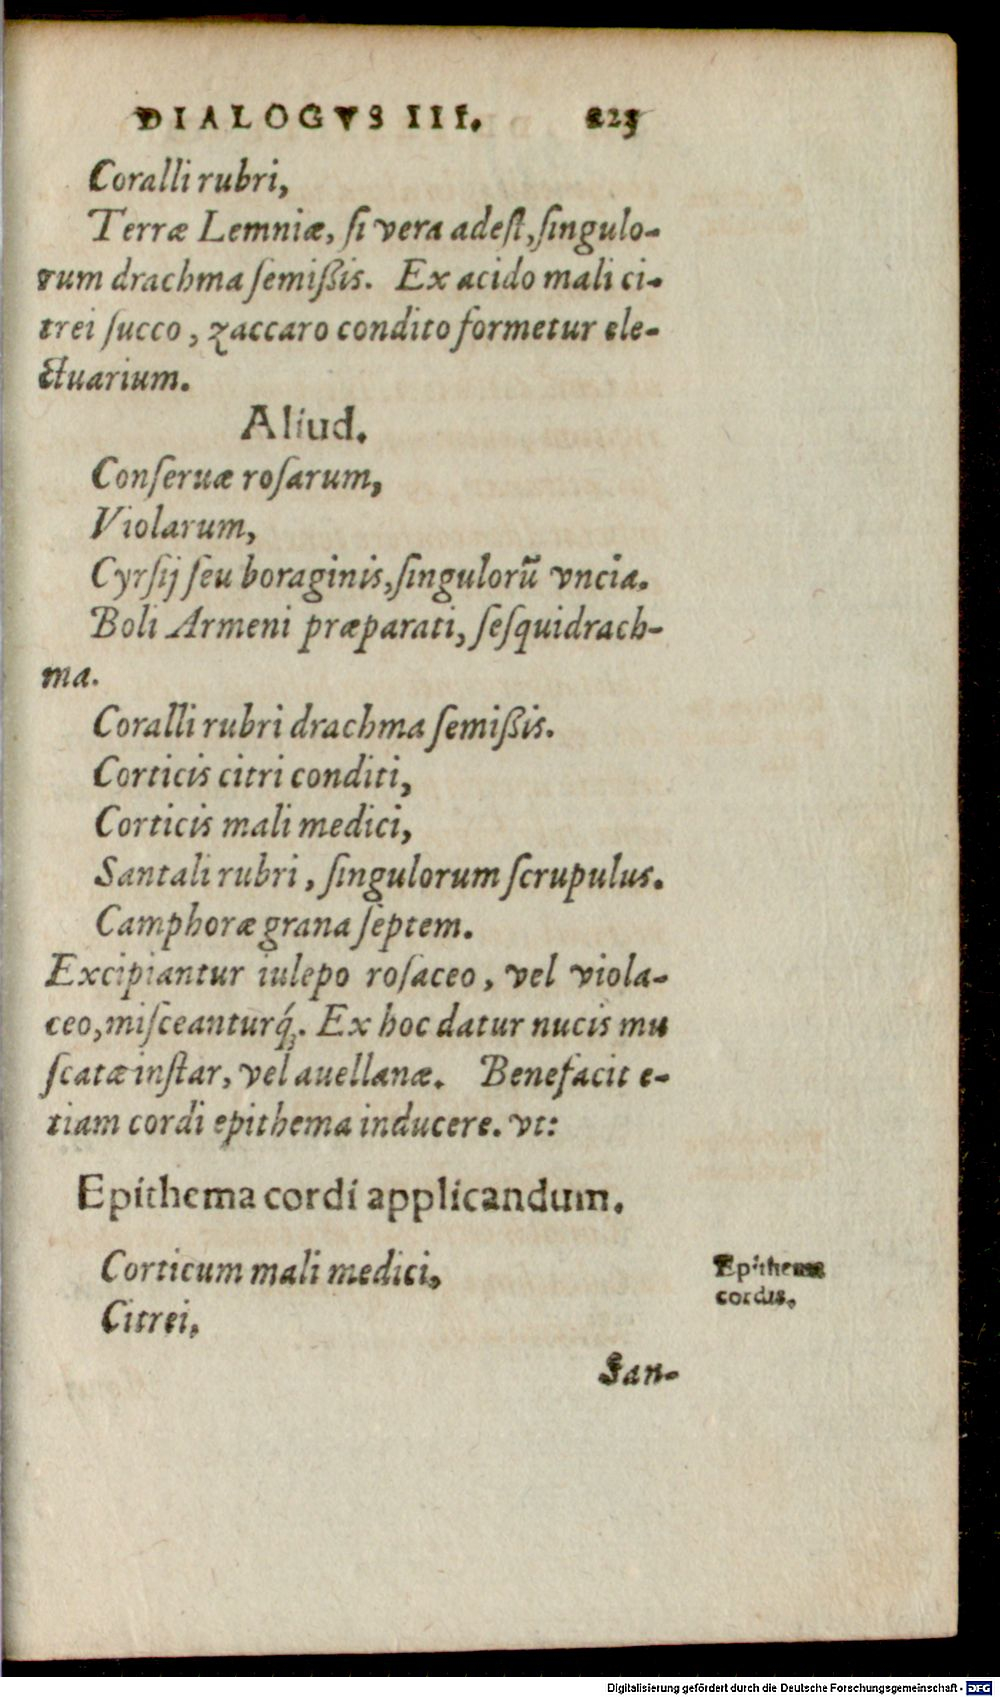 DIALOGVS III. 223
Coralli rubri,
Terræ Lemniæ, ſi vera adeſt, ſingulo-
rum drachma ſemißis. Ex acido mali ci-
trei ſucco, zaccaro condito formetur ele-
ctuarium.
Aliud.
Conſeruæ roſarum,
Violarum,
Cyrſij ſeu boraginis, ſingulorū vncia.
Boli Armeni præparati, ſeſquidrach-
ma.
Coralli rubri drachma ſemißis.
Corticis citri conditi,
Corticis mali medici,
Santali rubri, ſingulorum ſcrupulus.
Camphoræ grana ſeptem.
Excipiantur iulepo roſaceo, vel viola-
ceo, miſceanturq́;. Ex hoc datur nucis mu
ſcatæ inſtar, vel auellanæ. Benefacit e-
tiam cordi epithema inducere. vt:
Epithema cordi applicandum.
Corticum mali medici,
Epithema
cordis.
Citrei,
San-
Digitalisierung gefördert durch die Deutsche Forschungsgemeinschaft - DFG